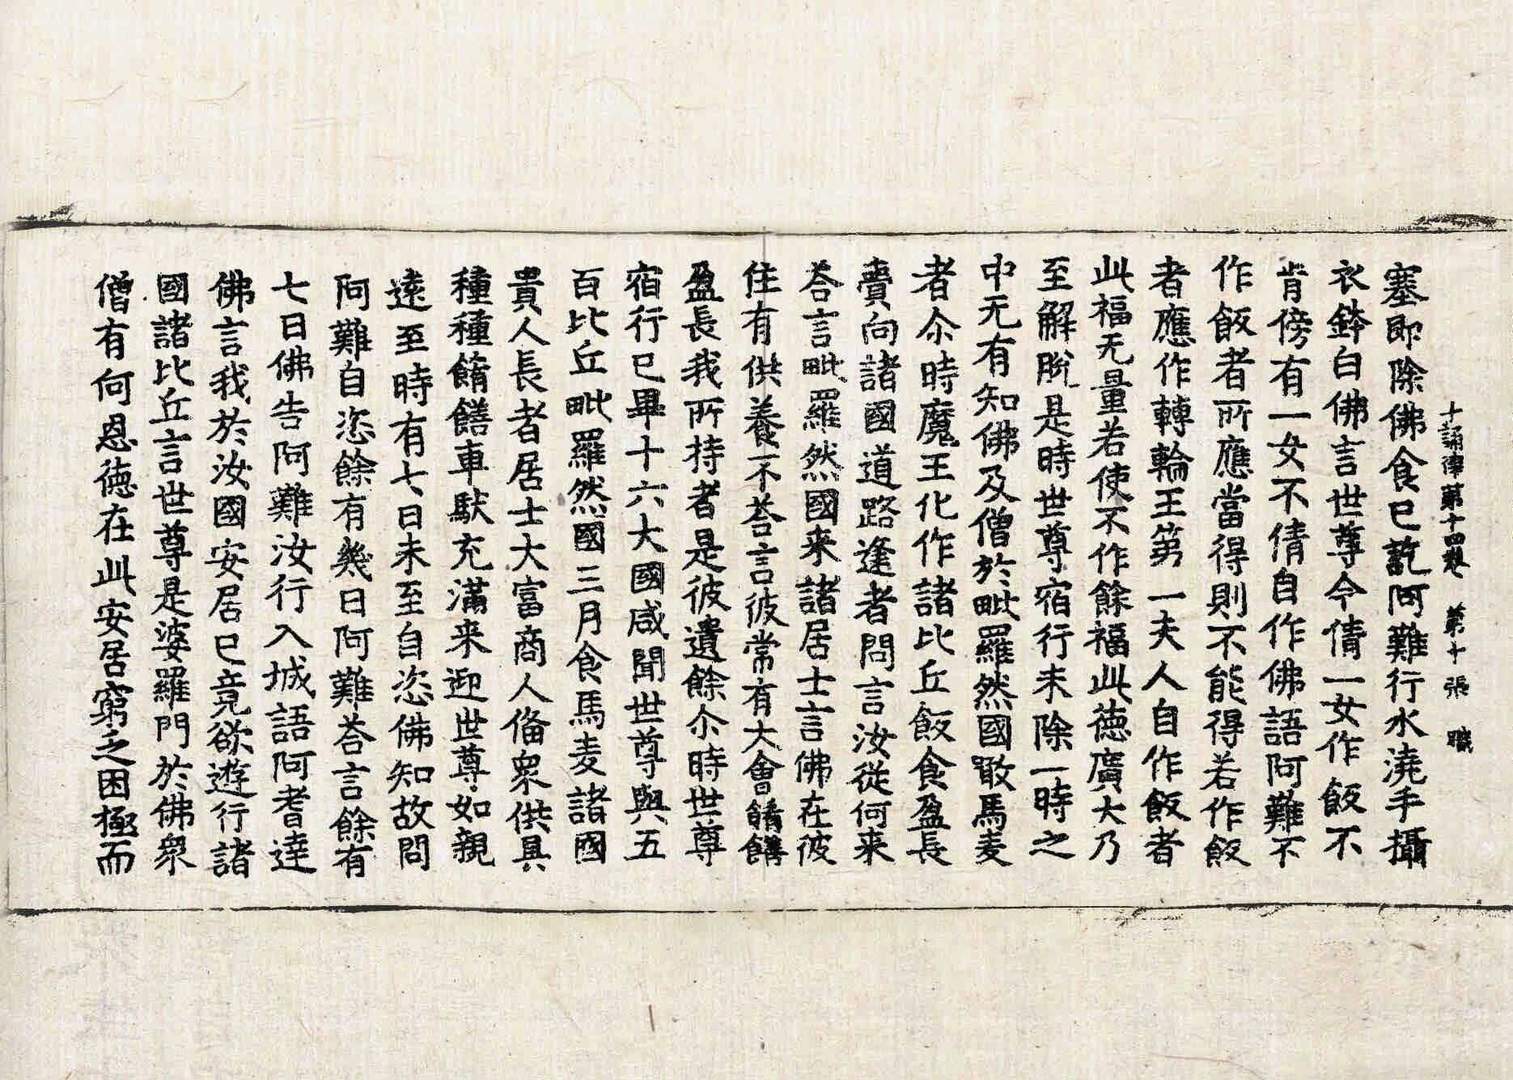 十誦律第十四卷 第十張 職
塞即除佛食已說阿難行水澆手攝
衣鉢白佛言世尊今倩一女作飯不
肯傍有一女不倩自作佛語阿難不
作飯者所應當得則不能得若作飯
者應作轉輪王第一夫人自作飯者
此福无量若使不作餘福此德廣大乃
至解脫是時世尊宿行未除一時之
中无有知佛及僧於毗羅然國噉馬麦
者尒時魔王化作諸比丘飯食盈長
賷向諸國道路逢者問言汝從何来
荅言毗羅然國来諸居士言佛在彼
住有供養不荅言彼常有大會餚饍
盈長我所持者是彼遺餘尒時世尊
宿行已畢十六大國咸聞世尊與五
百比丘毗羅然國三月食馬麦諸國
貴人長者居士大富商人俻衆供具
種種餚饍車馱充滿来迎世尊如親
遠至時有七日未至自恣佛知故問
阿難自恣餘有幾日阿難荅言餘有
七日佛告阿難汝行入城語阿耆達
佛言我於汝國安居已竟欲遊行諸
國諸比丘言世尊是婆羅門於佛衆
僧有何恩德在此安居窮乏困極而